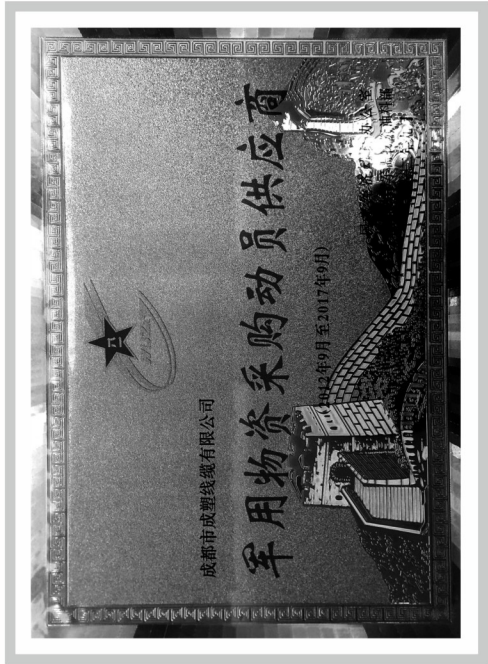 成都市成塑线缆有限公司
军用物资采购动员供应商
(2012年9月至2017年9月)